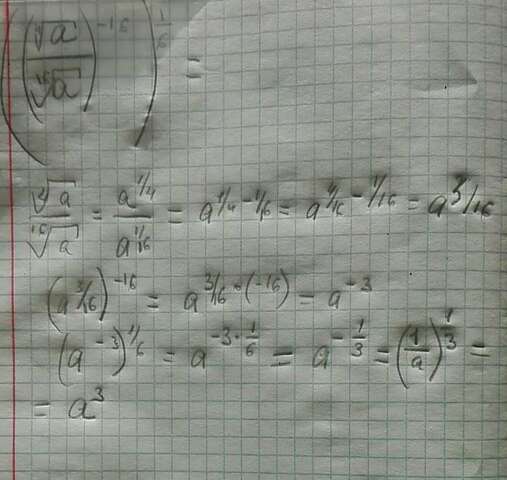 ((∜a / ¹⁶√a)^-16)^1/6 =
∜a / ¹⁶√a = a^1/4 / a^1/16 = a^1/4 - 1/16 = a^4/16 - 1/16 = a^3/16
(a^3/16)^-16 = a^3/16 · (-16) = a^-3
(a^-3)^1/6 = a^-3 · 1/6 = a^-1/3 = (1/a)^1/3 =
= a^3